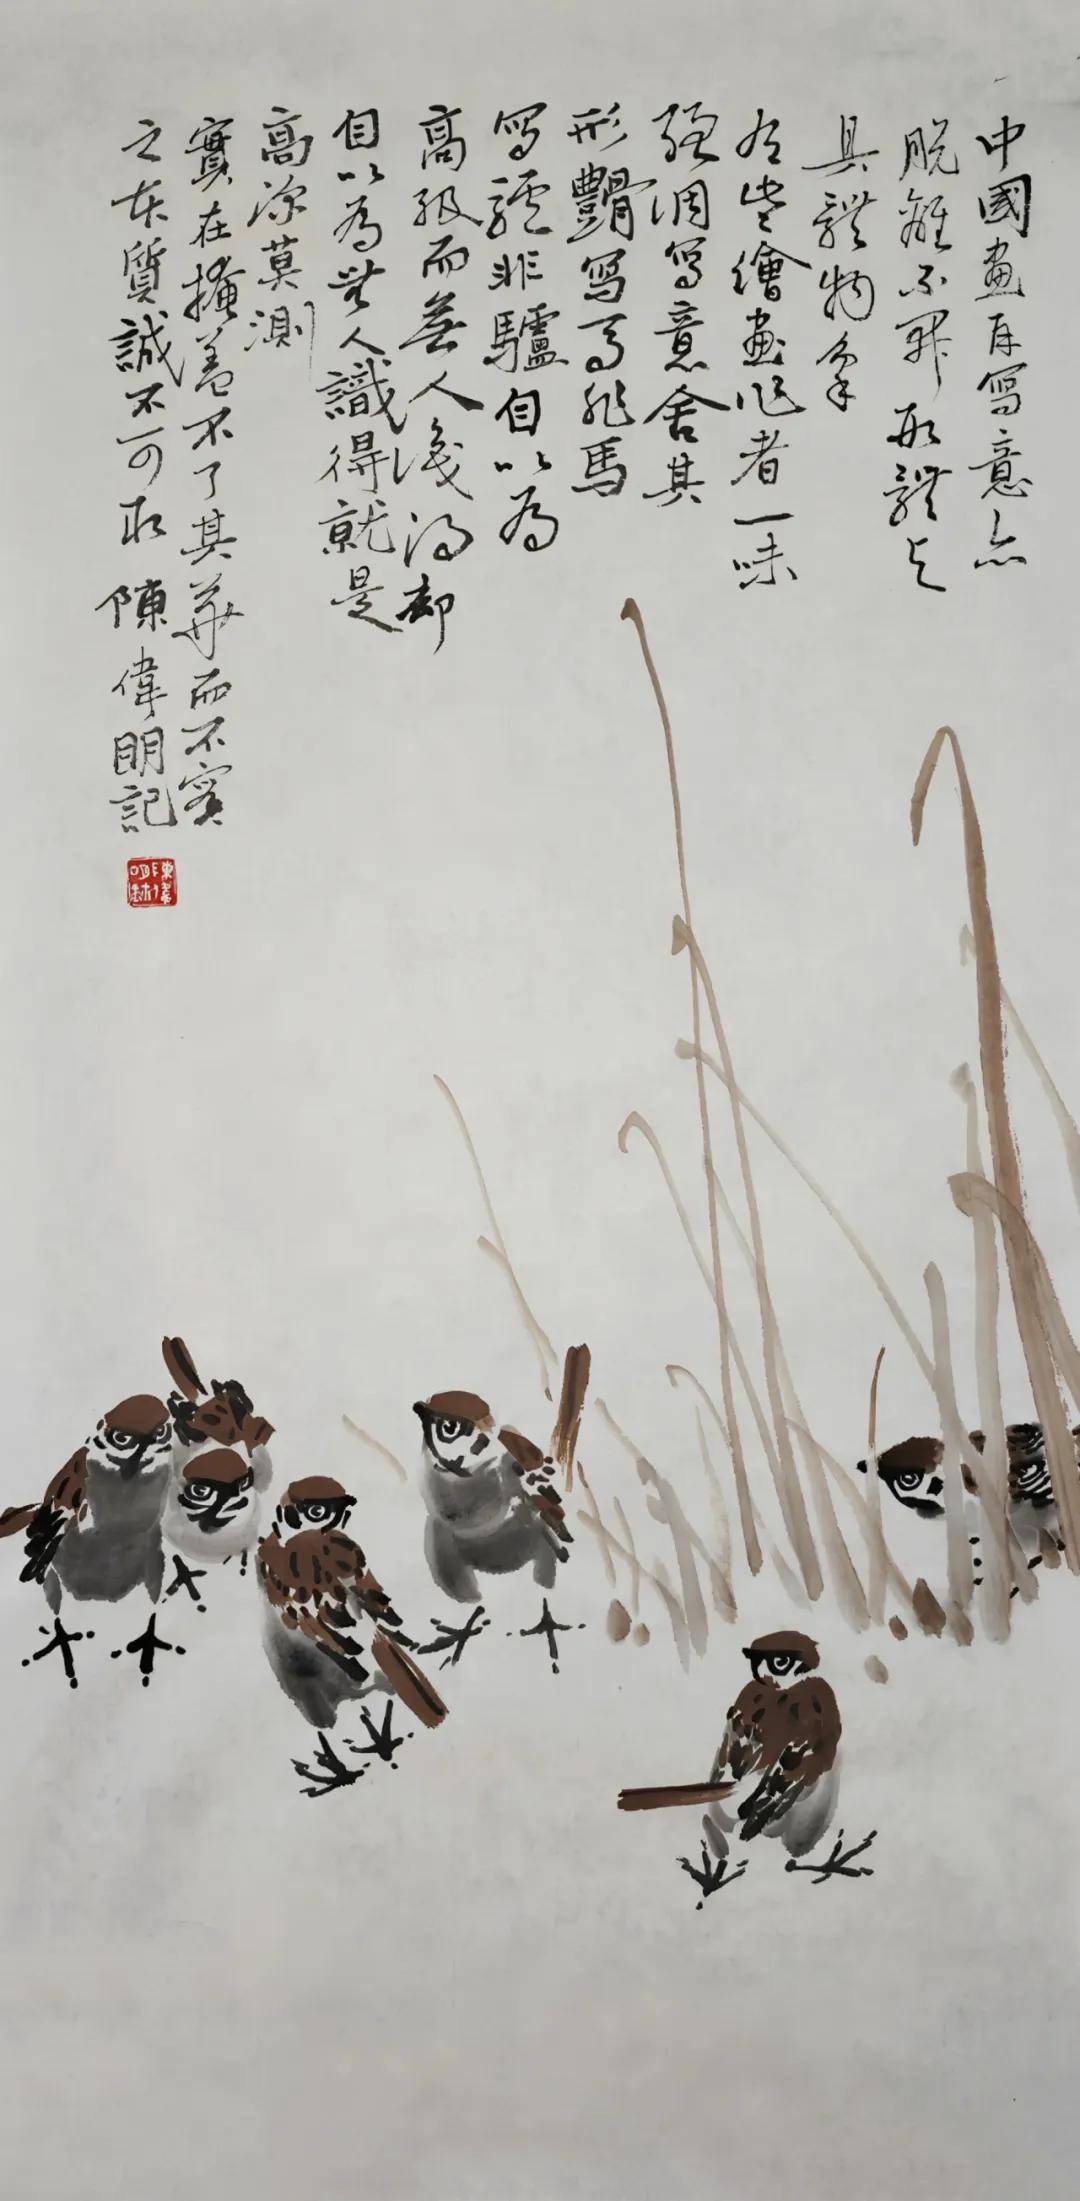 中國畫再寫意亦
脫離不開形體与
具體物象
有些繪畫作者一味
強調寫意舍其
形體寫馬非馬
寫驢非驢自以為
高級而無人識得却
自以為無人識得就是
高深莫測
實在掩蓋不了其華而不實
之本質誠不可取 陳偉明記